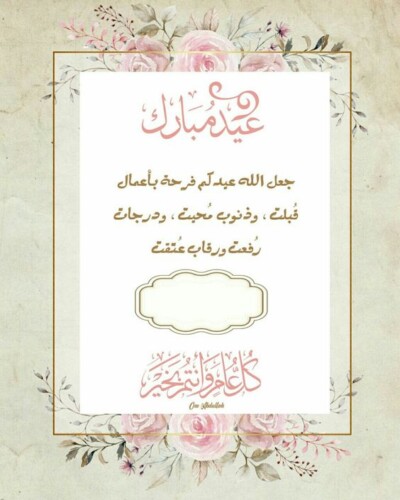 عيد مُبارك
جعل الله عيدكم فرحة بأعمال
قُبلت ، وذنوب مُحيت ، ودرجات
رُفعت ورقاب عُتقت
كُل عَام وَأنتُم بِخَيْر
Om Abdullah